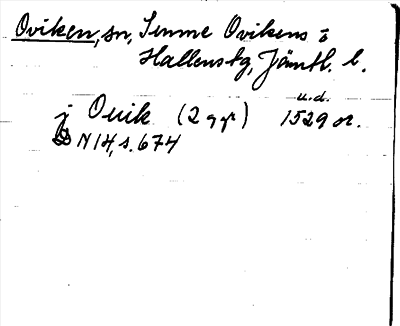 Oviken, sn, Sunne Ovikens o
Hallens tg, Jämtl. l.
u.d.
j Ouik (2 ggr) 1529 or.
N 14, s. 674